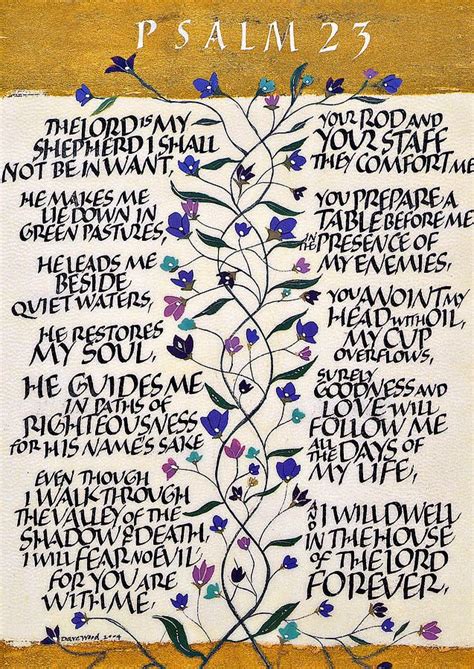 PSALM 23
THE LORD IS MY
SHEPHERD I SHALL
NOT BE IN WANT,
HE MAKES ME
LIE DOWN IN
GREEN PASTURES,
HE LEADS ME
BESIDE
QUIET WATERS,
HE RESTORES
MY SOUL,
HE GUIDES ME
IN PATHS OF
RIGHTEOUSNESS
FOR HIS NAME'S SAKE
EVEN THOUGH
I WALK THROUGH
THE VALLEY OF THE
SHADOW OF DEATH,
I WILL FEAR NO EVIL,
FOR YOU ARE
WITH ME,
YOUR ROD AND
YOUR STAFF
THEY COMFORT ME
YOU PREPARE A
TABLE BEFORE ME
IN THE PRESENCE OF
MY ENEMIES,
YOU ANOINT MY
HEAD WITH OIL,
MY CUP
OVERFLOWS,
SURELY
GOODNESS AND
LOVE WILL
FOLLOW ME
ALL THE DAYS OF
MY LIFE,
AND I WILL DWELL
IN THE HOUSE
OF THE LORD
FOREVER,
Dave Wood 2004